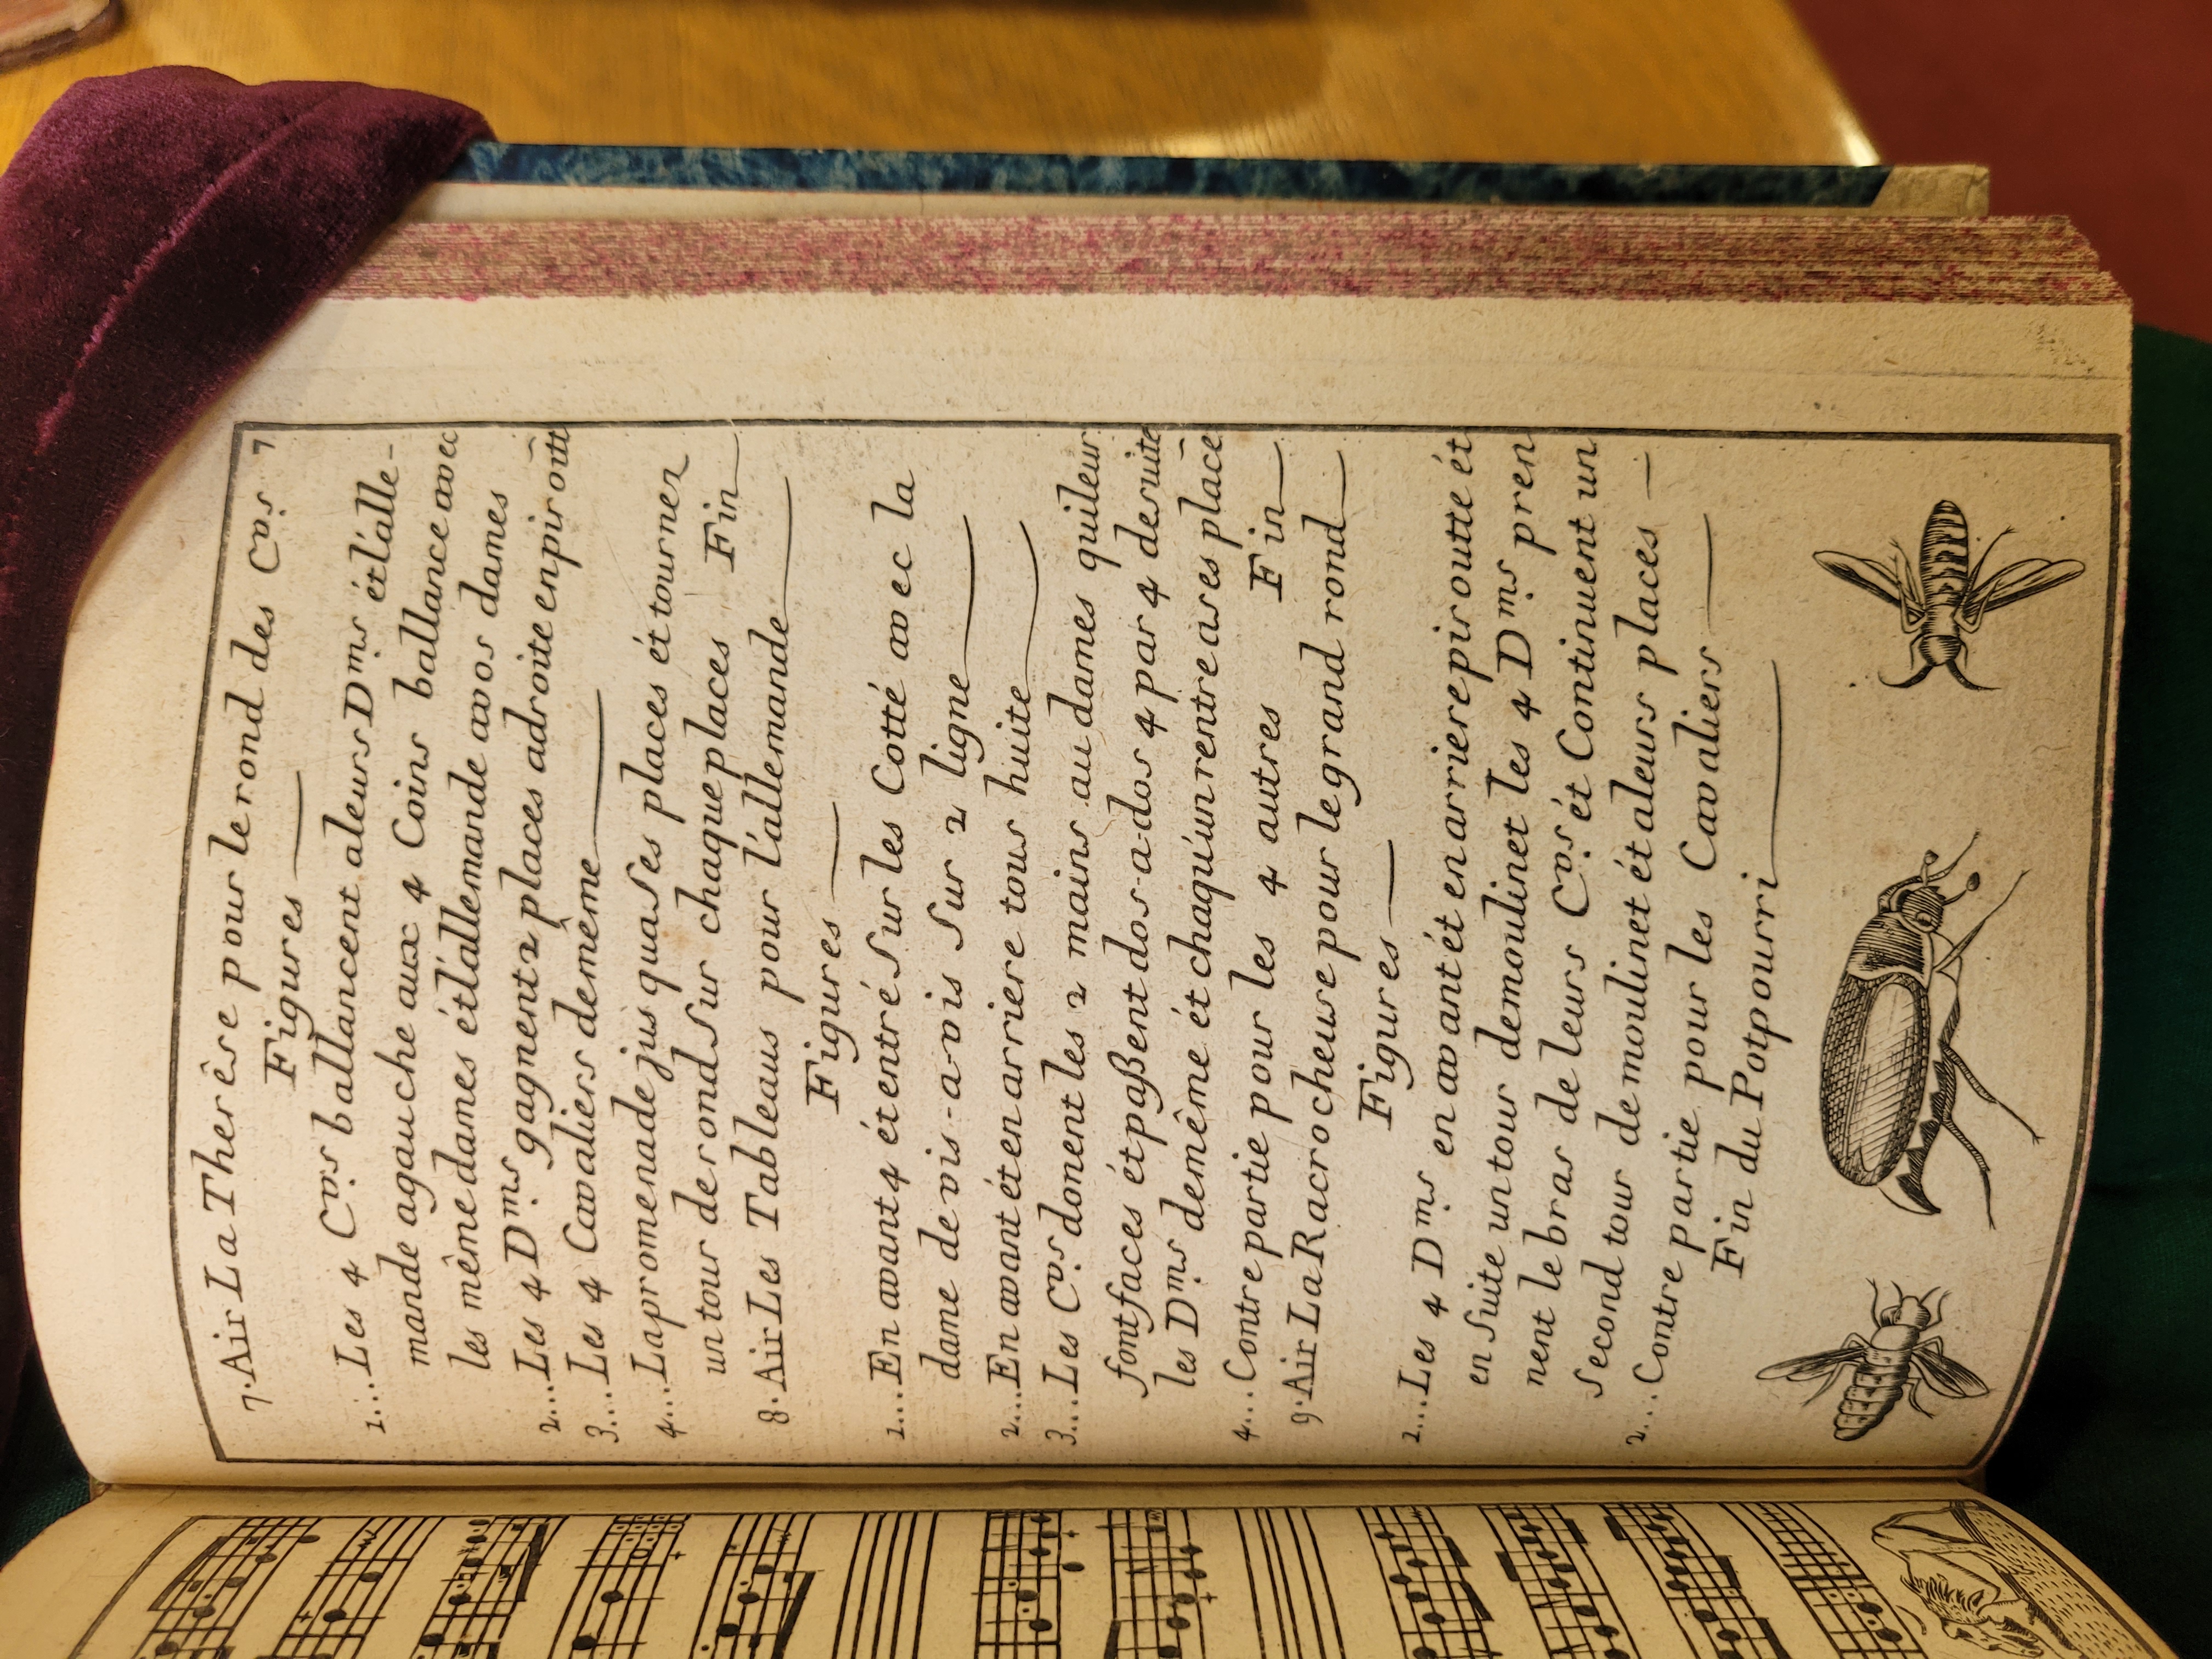 7
7. Air La Therêse pour le rond des Cvrs.
Figures
1... Les 4 Cvrs. ballancent a leurs Dmrs ét l'alle-
mande a gauche aux 4 Coins ballance avec
les même dames ét l'allemande a vos dames
2... Les 4 Dmrs gagnent 2 places a droite en piroutt
3... Les 4 Cavaliers de même
4... La promenade jus qu a Ses places ét tourner
un tour de rond Sur chaque places Fin
8. Air Les Tableaus pour l'allemande
Figures
1... En avant 4 ét entré Sur les Cotté avec la
dame de vis-a-vis Sur 2 ligne
2... En avant ét en arriere tous huite
3... Les Cvrs. donent les 2 mains au dames qui leur
font faces ét paßent dos-a-dos 4 par 4 de suite
les Dmrs de même ét chaqu'un rentre a ses place
4... Contre partie pour les 4 autres Fin
9. Air La Racrocheuse pour le grand rond
Figures
1... Les 4 Dmrs en avant ét en arriere piroutte ét
en Suite un tour de moulinet les 4 Dmrs pren
nent le bras de leurs Cvrs. ét Continuent un
Second tour de moulinet ét a leurs places
2... Contre partie pour les Cavaliers
Fin du Potpourri